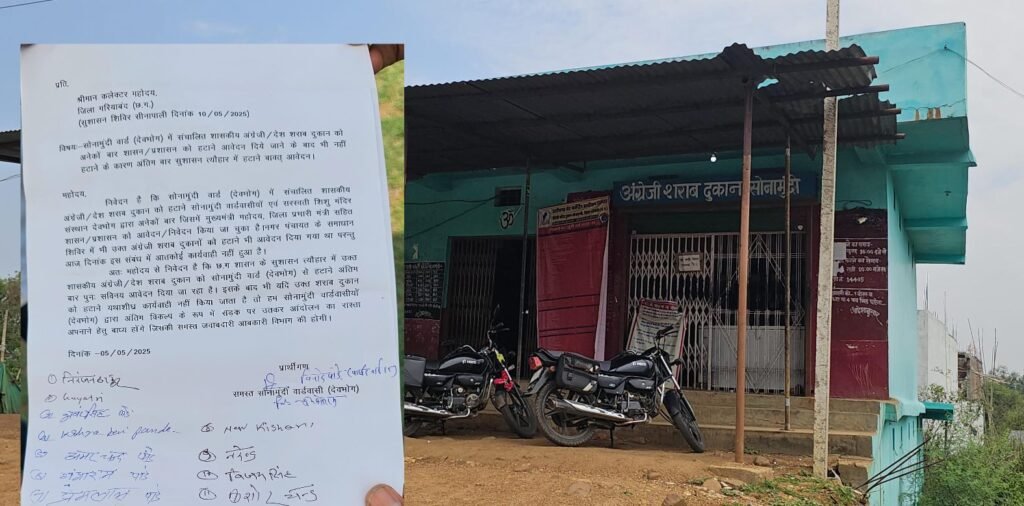 प्रति,
श्रीमान कलेक्टर महोदय,
जिला गरियाबंद (छ.ग.)
(सुशासन शिविर सीनापाली दिनांक 10/05/2025)
विषयः-सोनामुंदी वार्ड (देवभोग) में संचालित शासकीय अंग्रेजी/देश शराब दुकान को
अनेकों बार शासन/प्रशासन को हटाने आवेदन दिये जाने के बाद भी नहीं
हटाने के कारण अंतिम बार सुशासन त्यौहार में हटाने बाबत् आवेदन।
महोदय,
निवेदन है कि सोनामुंदी वार्ड (देवभोग) में संचालित शासकीय
अंग्रेजी/देश शराब दुकान को हटाने सोनामुंदी वार्डवासीयों एवं सरस्वती शिशु मंदिर
संस्थान देवभोग द्वारा अनेकों बार जिसमें मुख्यमंत्री महोदय, जिला प्रभारी मंत्री सहित
शासन/प्रशासन को आवेदन/निवेदन किया जा चुका है।नगर पंचायत के समाधान
शिविर में भी उक्त अंग्रेजी शराब दुकानों को हटाने भी आवेदन दिया गया था परन्तु
आज दिनांक इस संबंध में आतकोई कार्यवाही नहीं हुआ है।
अतः महोदय से निवेदन है कि छ.ग शासन के सुशासन त्यौहार में उक्त
शासकीय अंग्रेजी/देश शराब दुकान को सोनामुंदी वार्ड (देवभोग) से हटाने अंतिम
बार पुनः सविनय आवेदन दिया जा रहा है। इसके बाद भी यदि उक्त शराब दुकान
को हटाने यथाशीघ्र कार्यवाही नहीं किया जाता है तो हम सोनामुंदी वार्डवासीयों
(देवभोग) द्वारा अंतिम विकल्प के रूप में सड़क पर उतकर आंदोलन का रास्ता
अपनाने हेतु बाध्य होंगे जिसकी समस्त जवाबदारी आबकारी विभाग की होगी।
दिनांक -05/05/2025
प्रार्थीगण
समस्त सोनामुंदी वार्डवासी (देवभोग)
अंग्रेजी शराब दुकान सोनामुंदी
ॐ
14405